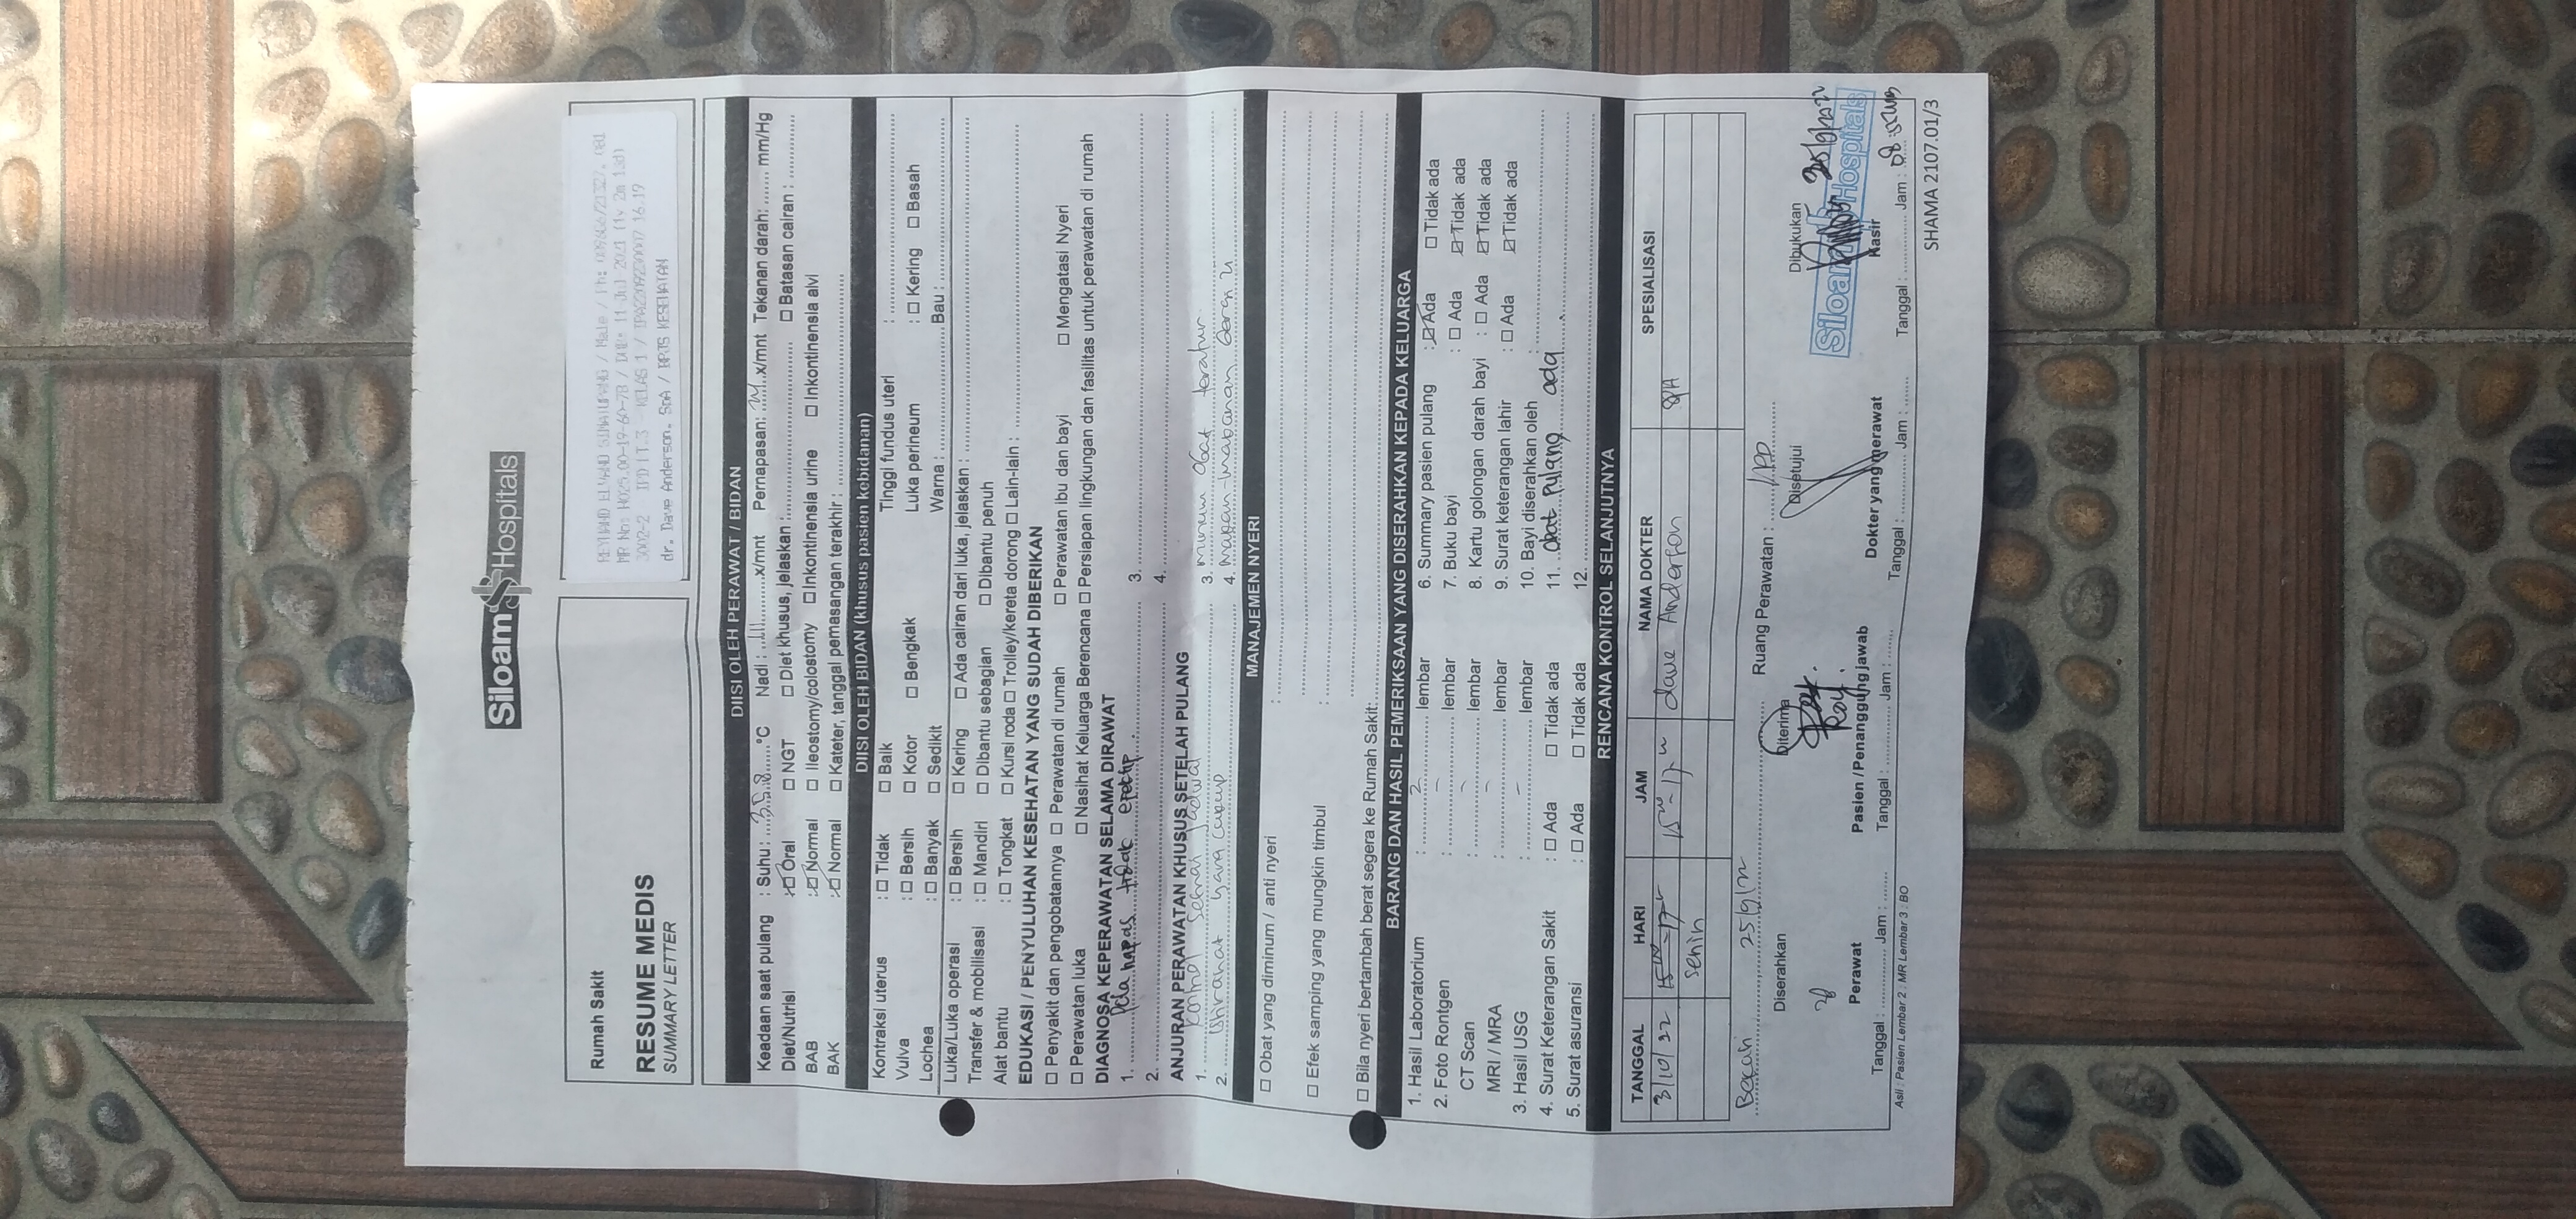 Siloam Hospitals
Rumah Sakit
RESUME MEDIS
SUMMARY LETTER
/ Male / Ph:
MR No: H025.00-19-60-78 / DOB: 11 Jul 2021 (1y 2m 13d)
3002-2 IPD LT.3 - KELAS 1 / IPA2209230007 16.19
dr. Dave Anderson. SpA / BPJS KESEHATAN
DIISI OLEH PERAWAT / BIDAN
Keadaan saat pulang : Suhu : 35.8 °C Nadi : 111 x/mnt Pernapasan: x/mnt Tekanan darah: ....... mm/Hg
Diet/Nutrisi : ☑ Oral ☐ NGT ☐ Diet khusus, jelaskan : ☐ Batasan cairan :
BAB : ☑ Normal ☐ Ileostomy/colostomy ☐ Inkontinensia urine ☐ Inkontinensia alvi
BAK : ☑ Normal ☐ Kateter, tanggal pemasangan terakhir :
DIISI OLEH BIDAN (khusus pasien kebidanan)
Kontraksi uterus : ☐ Tidak ☐ Baik Tinggi fundus uteri :
Vulva : ☐ Bersih ☐ Kotor ☐ Bengkak Luka perineum : ☐ Kering ☐ Basah
Lochea : ☐ Banyak ☐ Sedikit Warna : Bau :
Luka/Luka operasi : ☐ Bersih ☐ Kering ☐ Ada cairan dari luka, jelaskan :
Transfer & mobilisasi : ☐ Mandiri ☐ Dibantu sebagian ☐ Dibantu penuh
Alat bantu : ☐ Tongkat ☐ Kursi roda ☐ Trolley/kereta dorong ☐ Lain-lain :
EDUKASI / PENYULUHAN KESEHATAN YANG SUDAH DIBERIKAN
☐ Penyakit dan pengobatannya ☐ Perawatan di rumah ☐ Perawatan ibu dan bayi ☐ Mengatasi Nyeri
☐ Perawatan luka ☐ Nasihat Keluarga Berencana ☐ Persiapan lingkungan dan fasilitas untuk perawatan di rumah
DIAGNOSA KEPERAWATAN SELAMA DIRAWAT
1. Pola napas tidak efektip. 3.
2. 4.
ANJURAN PERAWATAN KHUSUS SETELAH PULANG
1. kontrol sesuai jadwal 3. minum obat teratur
2. istirahat yang cukup 4. makan-makanan bergizi
MANAJEMEN NYERI
☐ Obat yang diminum / anti nyeri :
☐ Efek samping yang mungkin timbul :
☐ Bila nyeri bertambah berat segera ke Rumah Sakit:
BARANG DAN HASIL PEMERIKSAAN YANG DISERAHKAN KEPADA KELUARGA
1. Hasil Laboratorium : 2 lembar 6. Summary pasien pulang : ☑ Ada ☐ Tidak ada
2. Foto Rontgen : - lembar 7. Buku bayi : ☐ Ada ☑ Tidak ada
CT Scan : - lembar 8. Kartu golongan darah bayi : ☐ Ada ☑ Tidak ada
MRI / MRA : - lembar 9. Surat keterangan lahir : ☐ Ada ☑ Tidak ada
3. Hasil USG : - lembar 10. Bayi diserahkan oleh :
4. Surat Keterangan Sakit : ☐ Ada ☐ Tidak ada 11. obat pulang ada.
5. Surat asuransi : ☐ Ada ☐ Tidak ada 12.
RENCANA KONTROL SELANJUTNYA
TANGGAL HARI JAM NAMA DOKTER SPESIALISASI
3/10/22 15⁰⁰-17⁰⁰ 15⁰⁰-17⁰⁰ dave Anderson SpA
senin
Bekasi 25/9/22 Ruang Perawatan : IPD
Diserahkan Diterima Disetujui Dibukukan
25/9/2022
Roy. Siloam Hospitals
Perawat Pasien /Penanggung jawab Dokter yang merawat Kasir
Tanggal : Jam : Tanggal : Jam : Tanggal : Jam : Tanggal : Jam :
Asli : Pasien Lembar 2 : MR Lembar 3 : BO
SHAMA 2107.01/3